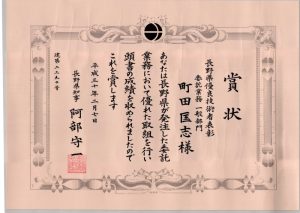 賞状
長野県優良技術者表彰
委託業務 一般部門
町田匡志様
あなたは長野県が発注した委託
業務において優れた取組を行い
頭書の成績を収められましたので
これを賞します
平成三十年二月七日
長野県知事 阿部守一